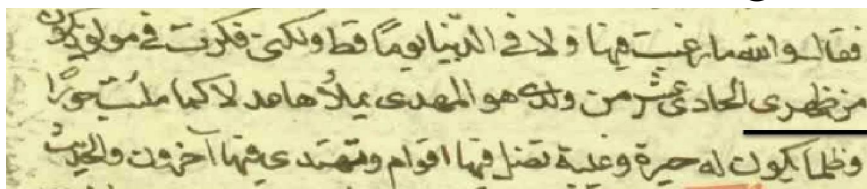 فقال لا والله ما رغبت فيها ولا في الدنيا يوما قط ولكني فكرت في مولود يكون
من ظهري الحادي عشر من ولدي هو المهدي يملأها عدلا كما ملئت جورا
وظلما يكون له حيرة وغيبة تضل فيها اقوام ويهتدي فيها آخرون والحديث